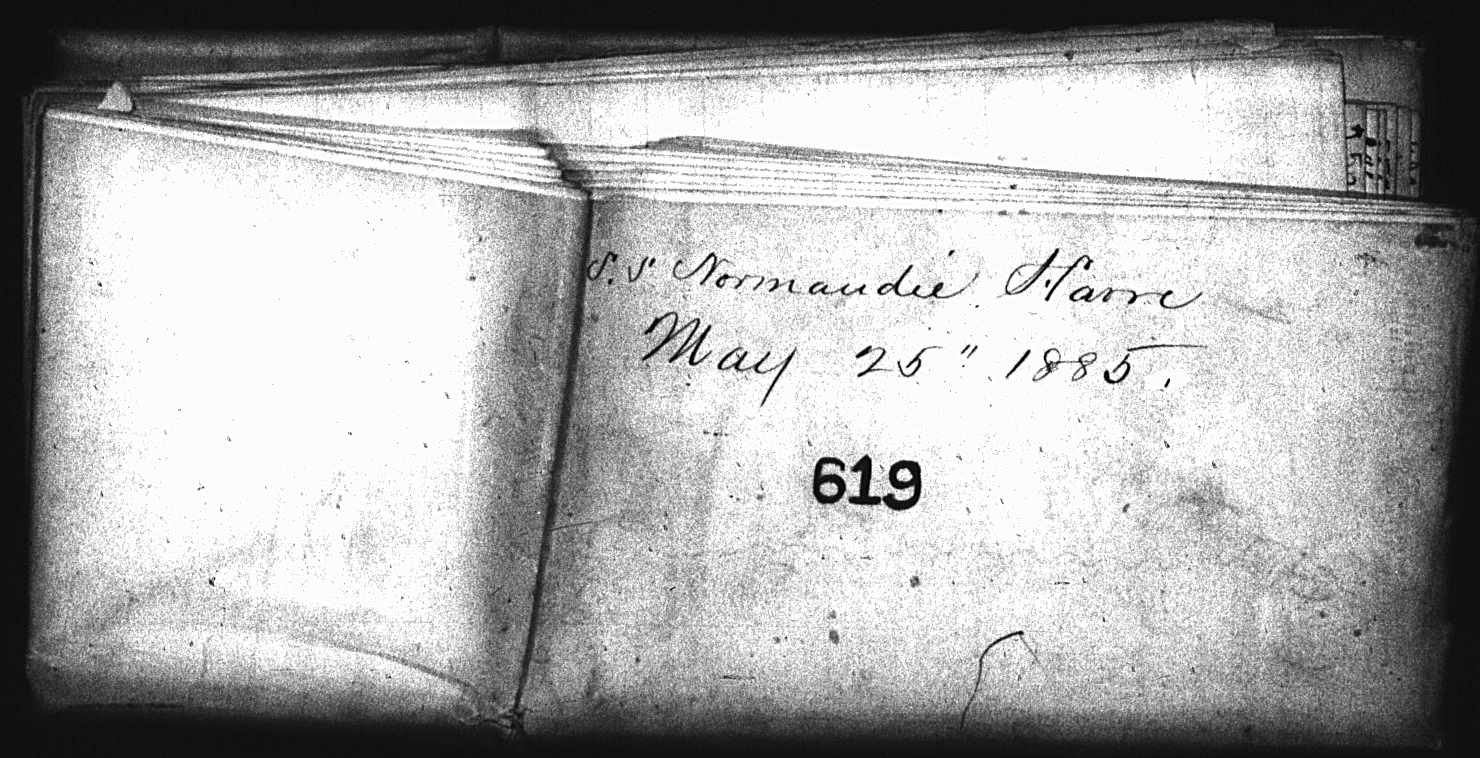 S.S. Normandie Havre
May 25" 1885.
619